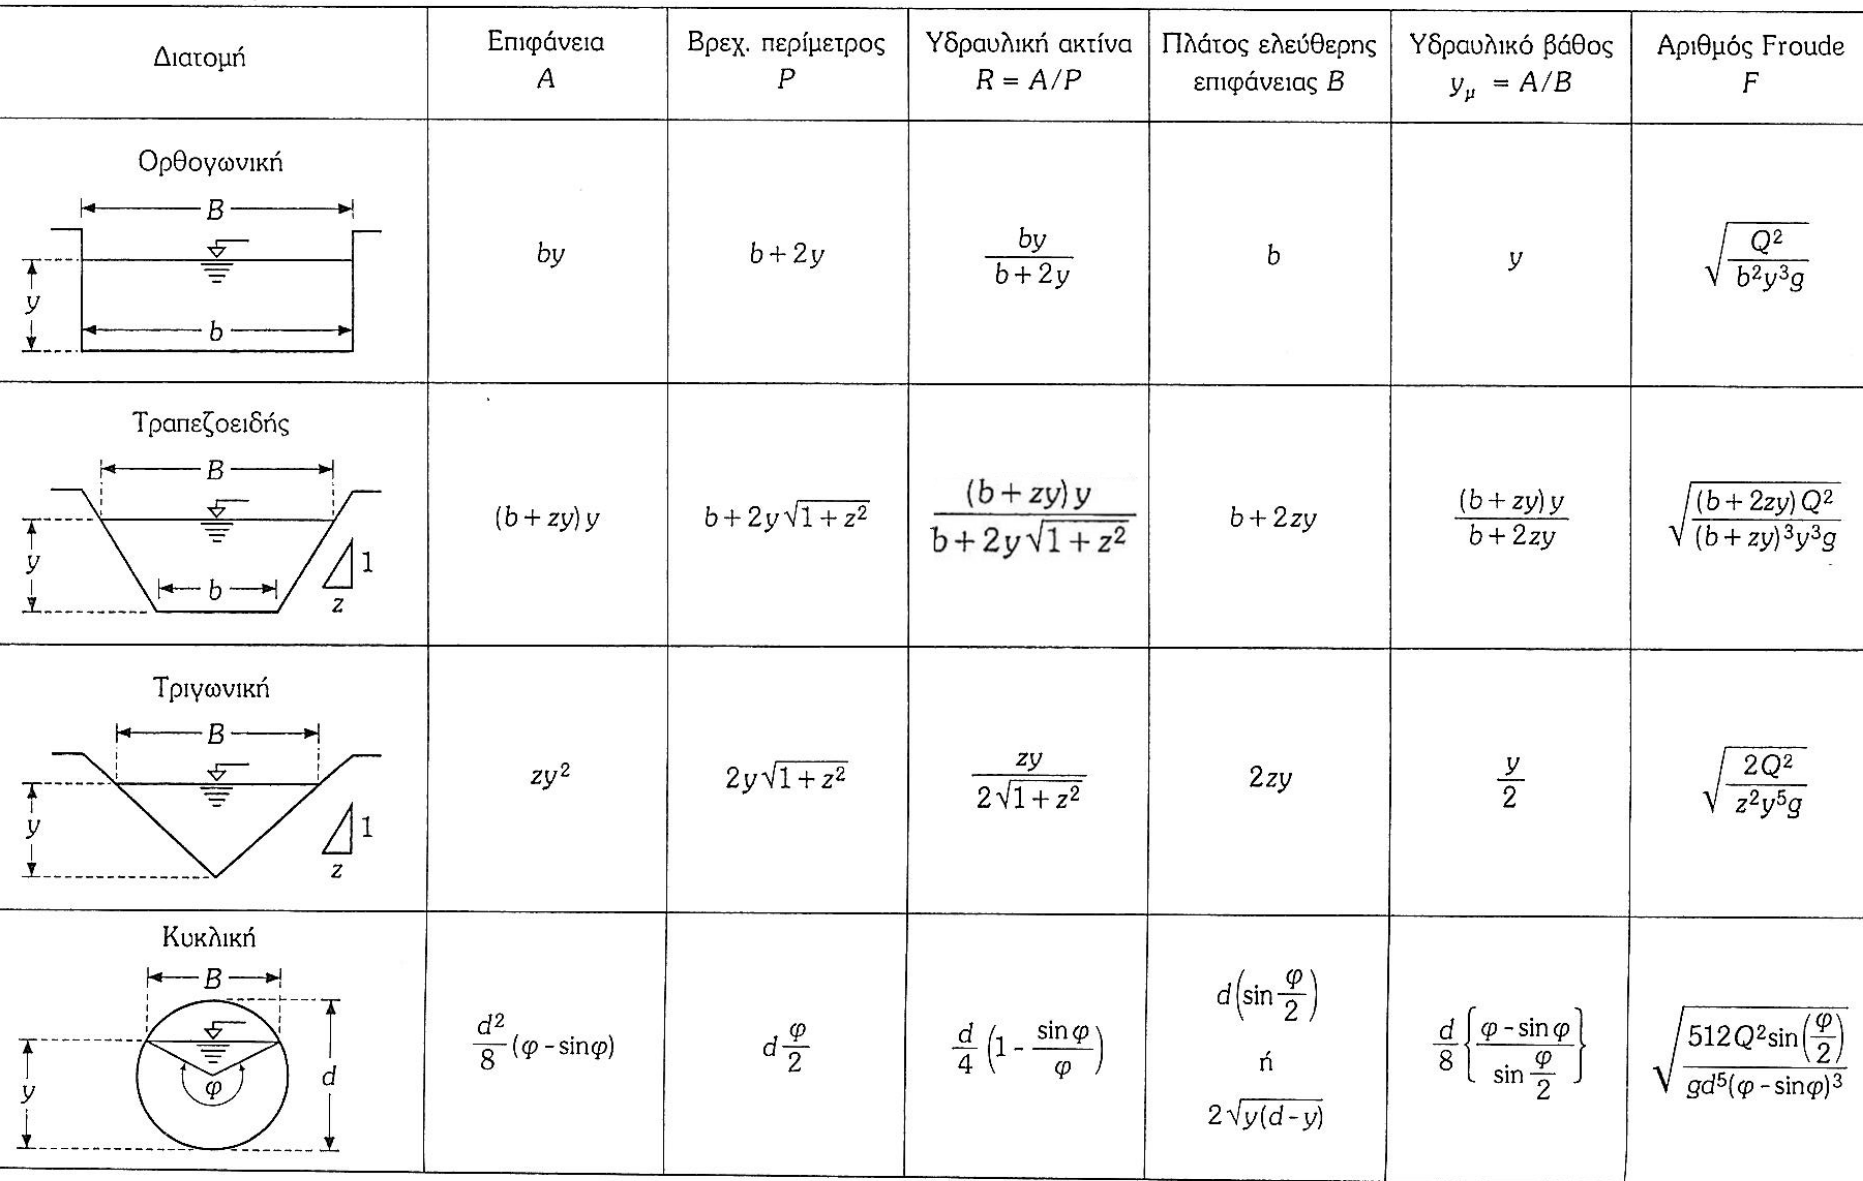 Διατομή
Επιφάνεια
A
Βρεχ. περίμετρος
P
Υδραυλική ακτίνα
R = A/P
Πλάτος ελεύθερης
επιφάνειας B
Υδραυλικό βάθος
yμ = A/B
Αριθμός Froude
F
Ορθογωνική
B
y
b
by
b + 2y
by / (b + 2y)
b
y
√(Q² / (b²y³g))
Τραπεζοειδής
B
y
b
1
z
(b + zy) y
b + 2y√(1 + z²)
(b + zy) y / (b + 2y√(1 + z²))
b + 2zy
(b + zy) y / (b + 2zy)
√((b + 2zy) Q² / ((b + zy)³y³g))
Τριγωνική
B
y
1
z
zy²
2y√(1 + z²)
zy / (2√(1 + z²))
2zy
y / 2
√(2Q² / (z²y⁵g))
Κυκλική
B
y
φ
d
d²/8 (φ - sinφ)
d φ/2
d/4 (1 - sinφ/φ)
d(sin φ/2)
ή
2√(y(d - y))
d/8 {(φ - sinφ) / (sin φ/2)}
√(512 Q² sin(φ/2) / (gd⁵(φ - sinφ)³))